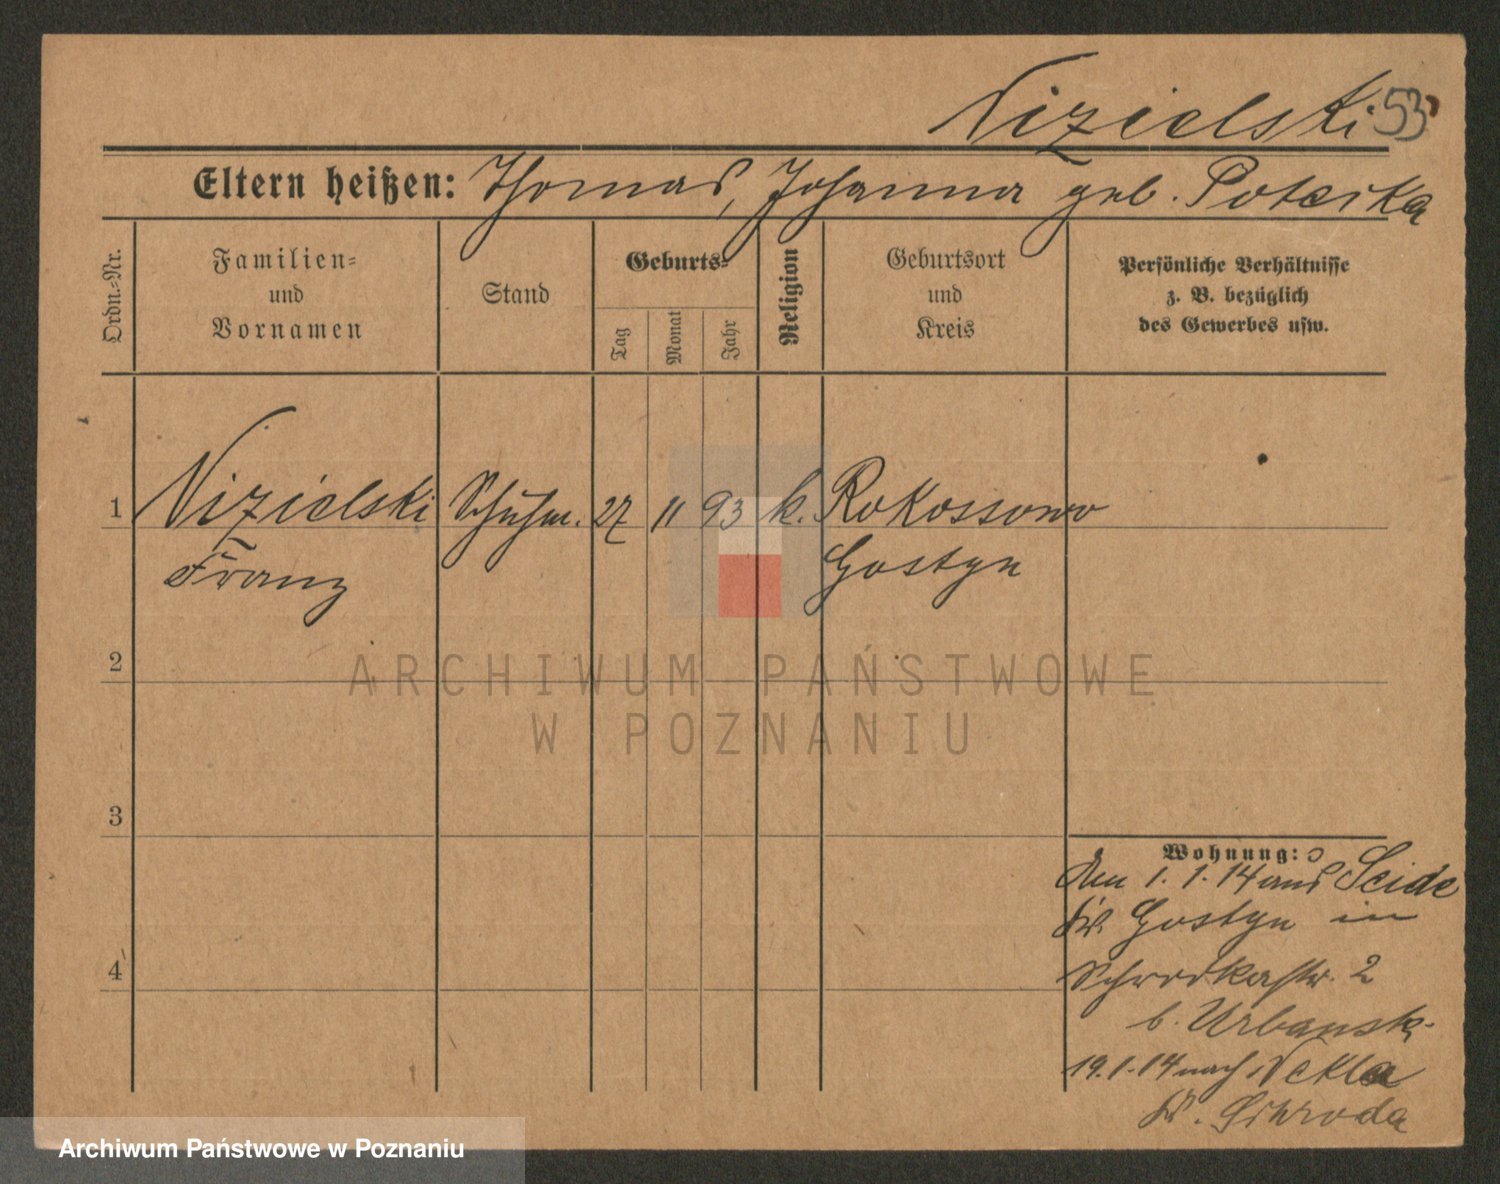 Nizielski 53
Eltern heißen: Thomas, Johanna geb. Poterska
Ordn.-Nr.
Familien-
und
Vornamen
Stand
Geburts-
Tag
Monat
Jahr
Religion
Geburtsort
und
Kreis
Persönliche Verhältnisse
z. B. bezüglich
des Gewerbes usw.
1 Nizielski Schuhm. 27 11 93 k. Rokossowo
Franz Gostyn
2
3
4
Wohnung:
Den 1. 1. 14 aus Seide
Kr. Gostyn in
Schrodkastr. 2
b. Urbansk.
19. 1. 14 nach Nekla
Kr. Schroda
ARCHIWUM PAŃSTWOWE
W POZNANIU
Archiwum Państwowe w Poznaniu